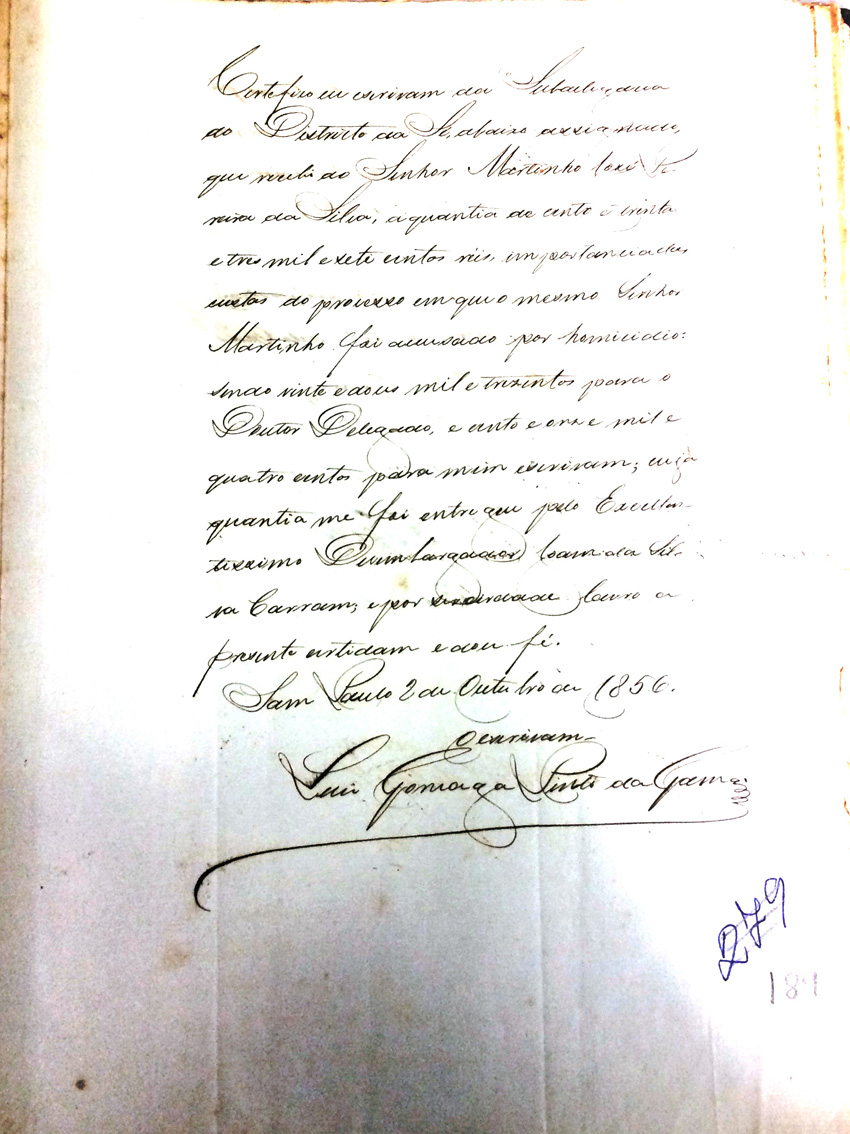 Certefico eu escrivam da Subdelegacia
do Districto da Sé, abaixo assignado,
que recebi do Senhor Martinho José
reira da Silva, a quantia de cento e trinta
e tres mil e sete centos réis, importancia das
custas do processo em que o mesmo Senhor
Martinho foi accusado por homicidio:
sendo vinte e dous mil e trezentos para o
Doutor Delegado, e cento e onze mil e
quatro centos para mim escrivam; cuja
quantia me foi entregeu pelo Excellen-
tissimo Desembargador Joam da Sil-
va Carram; e por ser verdade lavro a
presente certidam e dou fé.
Sam Paulo 2 de Outubro de 1856.
O escrivam
Luis Gonzaga Pinto da Gama
279
181